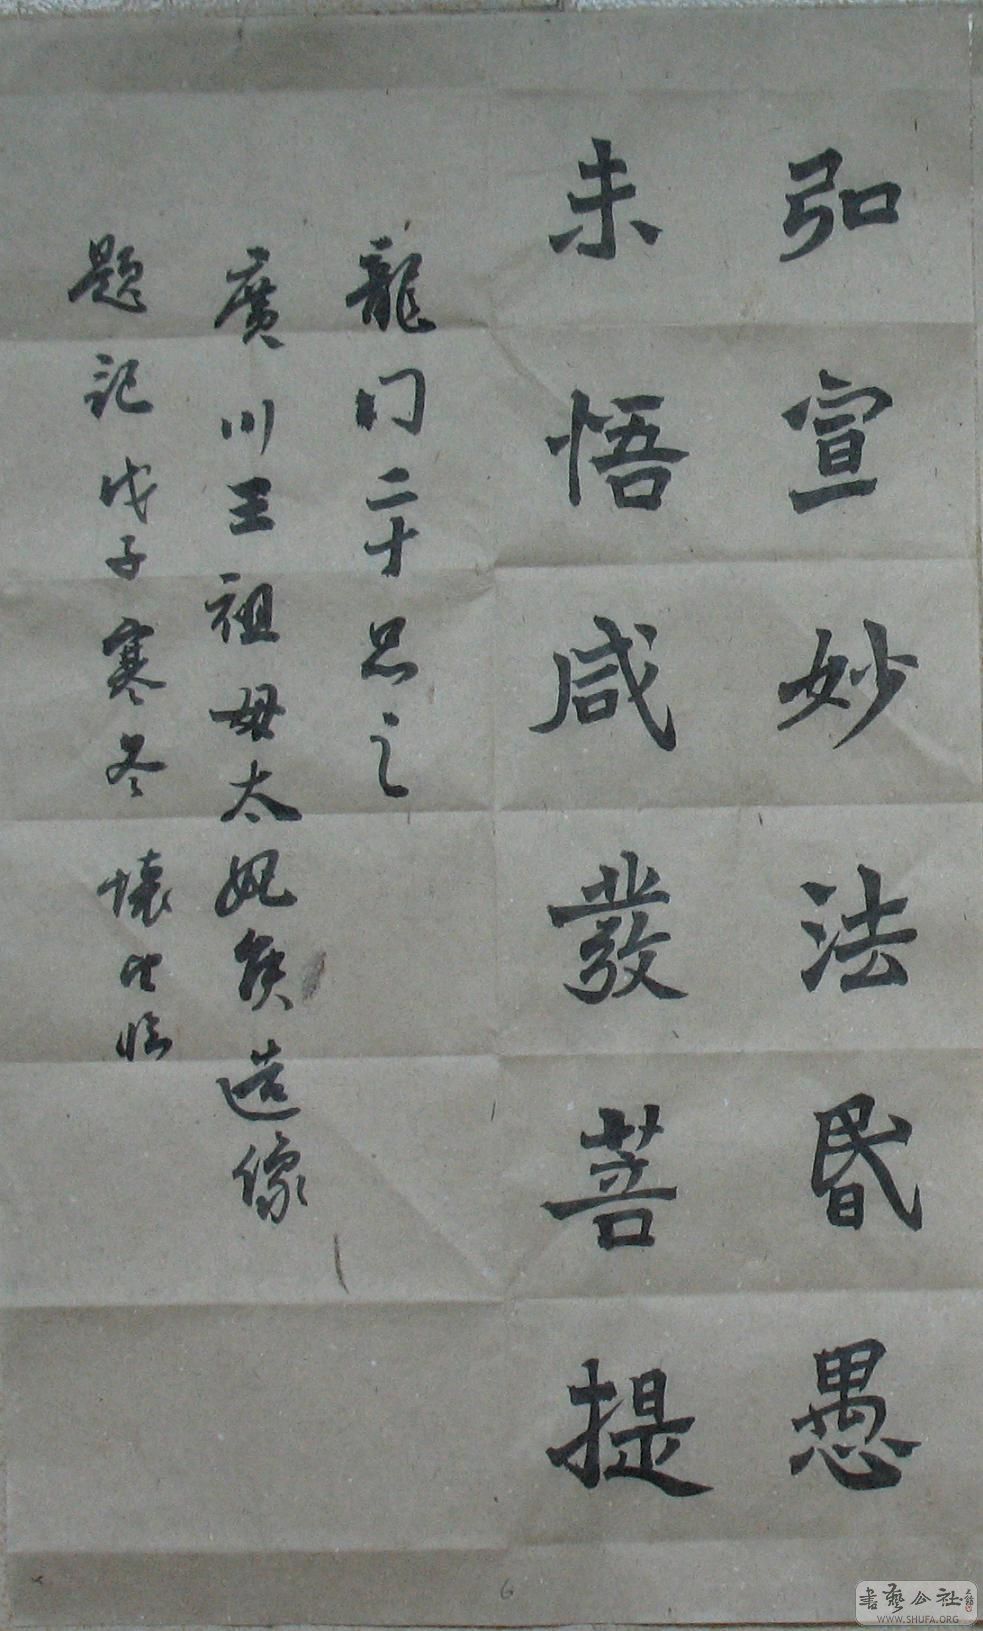 弘宣妙法昏愚
未悟咸發菩提
龍门二十品之
廣川王祖母太妃侯造像
題记戊子寒冬懷
临
書藝公社
WWW.SHUFA.ORG
6